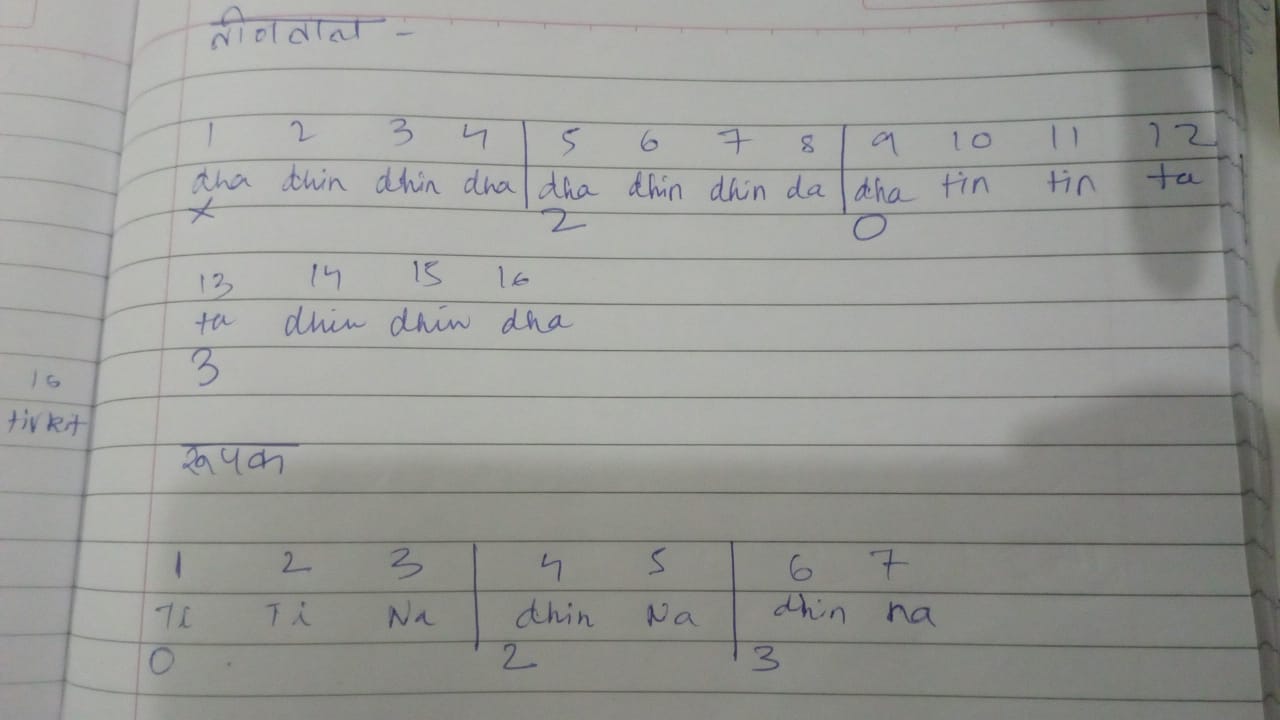 तीनताल -
1 2 3 4 | 5 6 7 8 | 9 10 11 12
dha dhin dhin dha | dha dhin dhin da | dha tin tin ta
x 2 0
13 14 15 16
ta dhin dhin dha
3
16
tirkit
रूपक
1 2 3 | 4 5 | 6 7
Ti Ti Na | dhin Na | dhin na
0 2 3